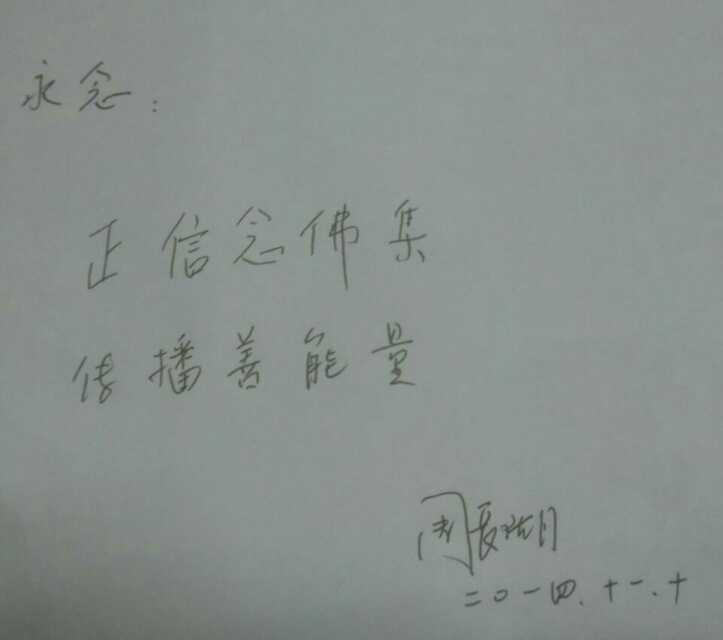 永念：
正信念佛集
传播善能量
周长湖
二〇一四.十一.十